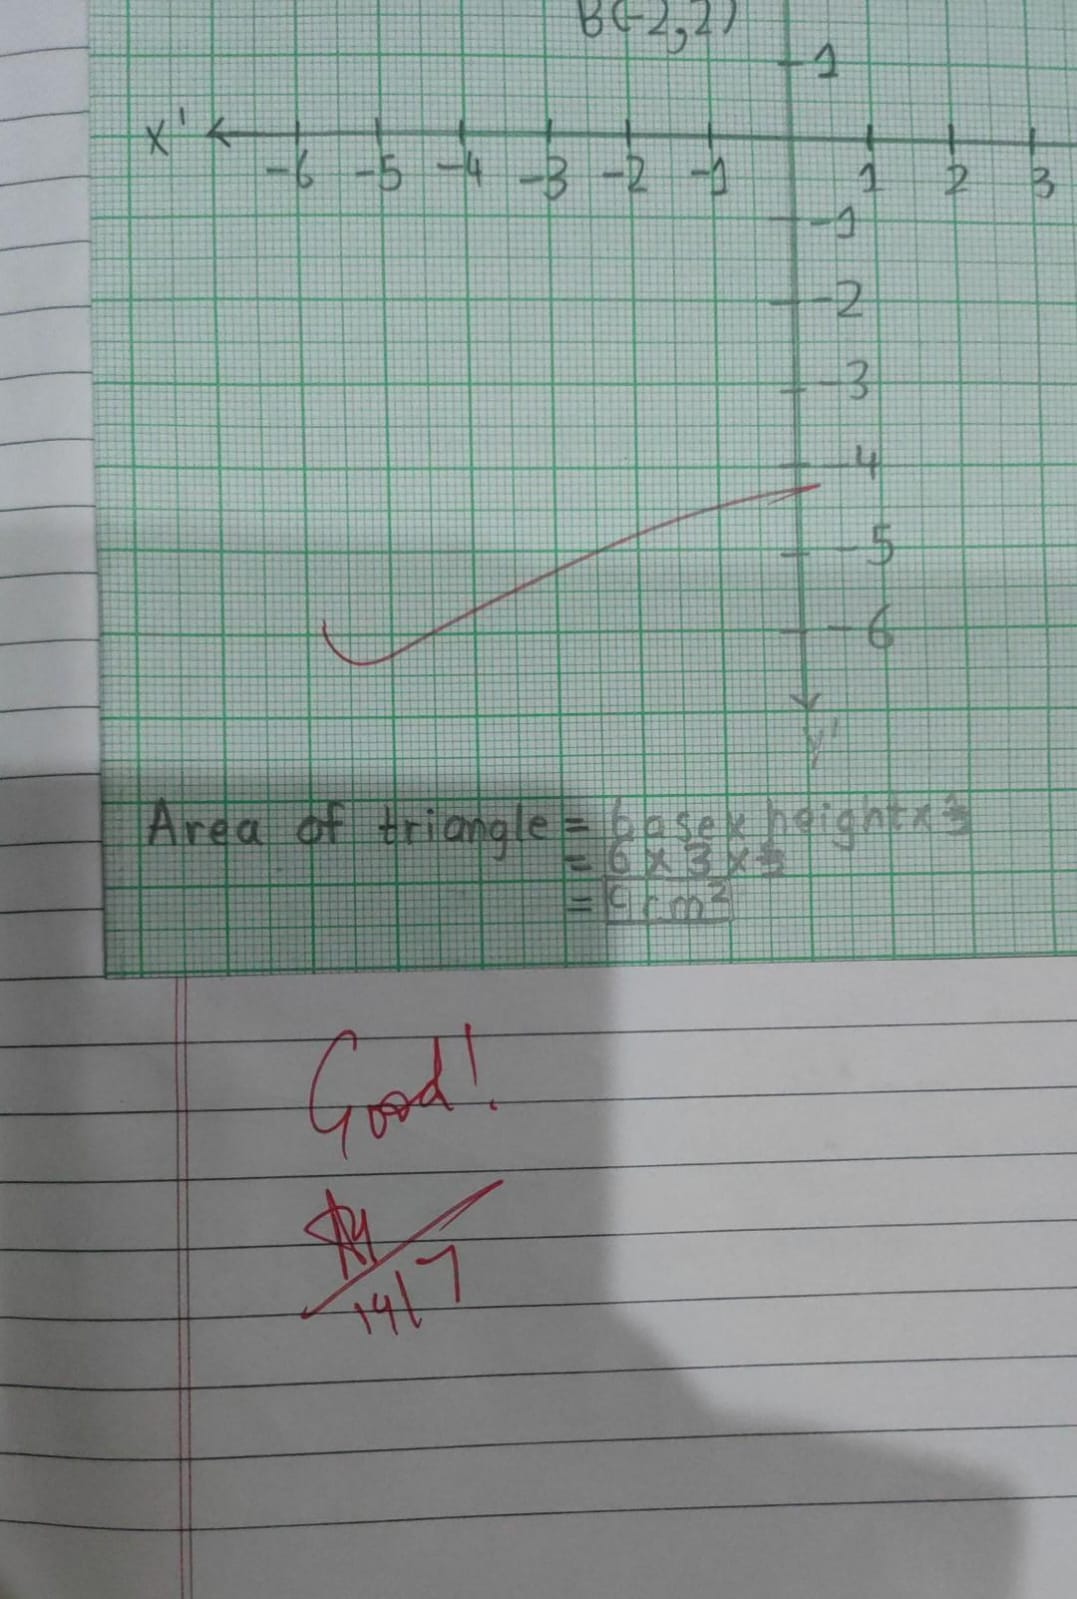 B(-2,2)
1
X'
-6 -5 -4 -3 -2 -1 1 2 3
-1
-2
-3
-4
-5
-6
Y'
Area of triangle = base x height x ½
= 6 x 3 x ½
= 9cm²
Good!
14/7